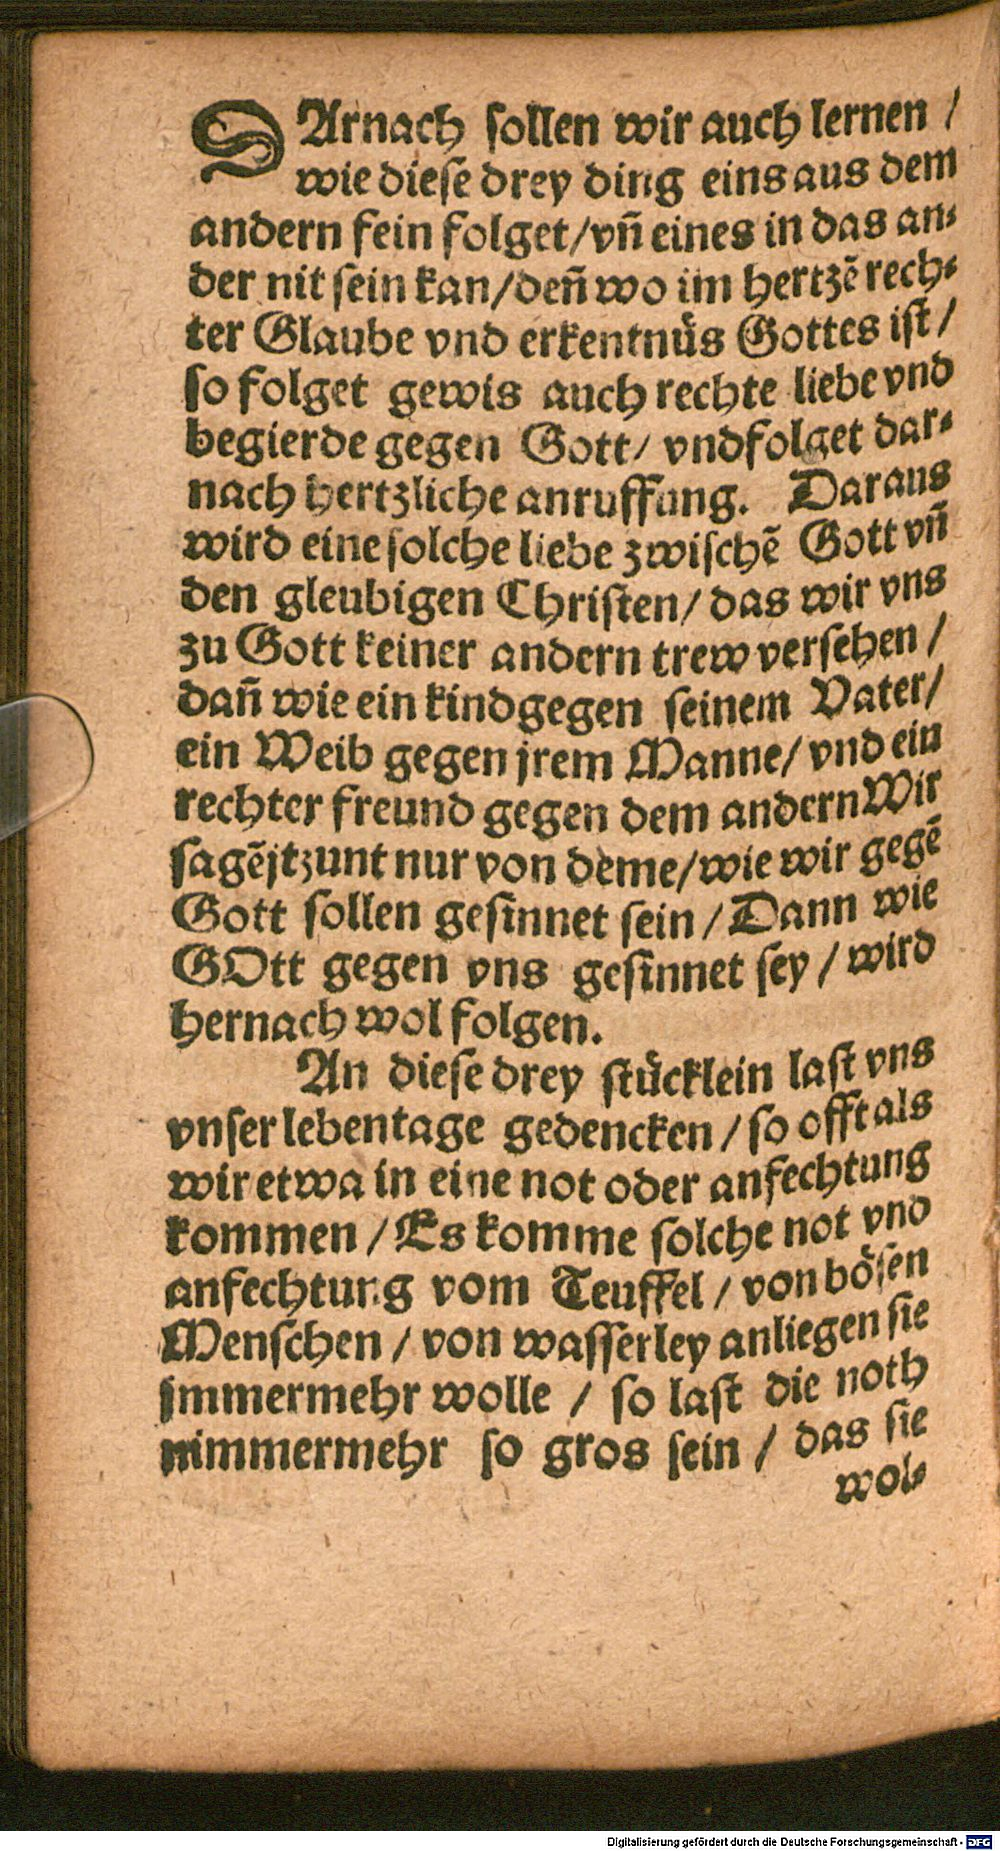 DArnach sollen wir auch lernen /
wie diese drey ding eins aus dem
andern fein folget/vñ eines in das an⸗
der nit sein kan/deñ wo im hertzẽ rech⸗
ter Glaube vnd erkentnüs Gottes ist /
so folget gewis auch rechte liebe vnd
begierde gegen Gott/ vnd folget dar⸗
nach hertzliche anruffung. Daraus
wird eine solche liebe zwischẽ Gott vñ
den gleubigen Christen/ das wir vns
zu Gott keiner andern trew versehen /
dañ wie ein kind gegen seinem Vater/
ein Weib gegen jrem Manne/ vnd ein
rechter freund gegen dem andern Wir
sagẽ jtzunt nur von deme/wie wir gegẽ
Gott sollen gesinnet sein / Dann wie
GOtt gegen vns gesinnet sey / wird
hernach wol folgen.
An diese drey stücklein last vns
vnser lebentage gedencken / so offt als
wir etwa in eine not oder anfechtung
kommen / Es komme solche not vnd
anfechtung vom Teuffel / von bösen
Menschen / von wasserley anliegen sie
jmmermehr wolle / so last die noth
nimmermehr so gros sein / das sie
wol⸗
Digitalisierung gefördert durch die Deutsche Forschungsgemeinschaft - DFG